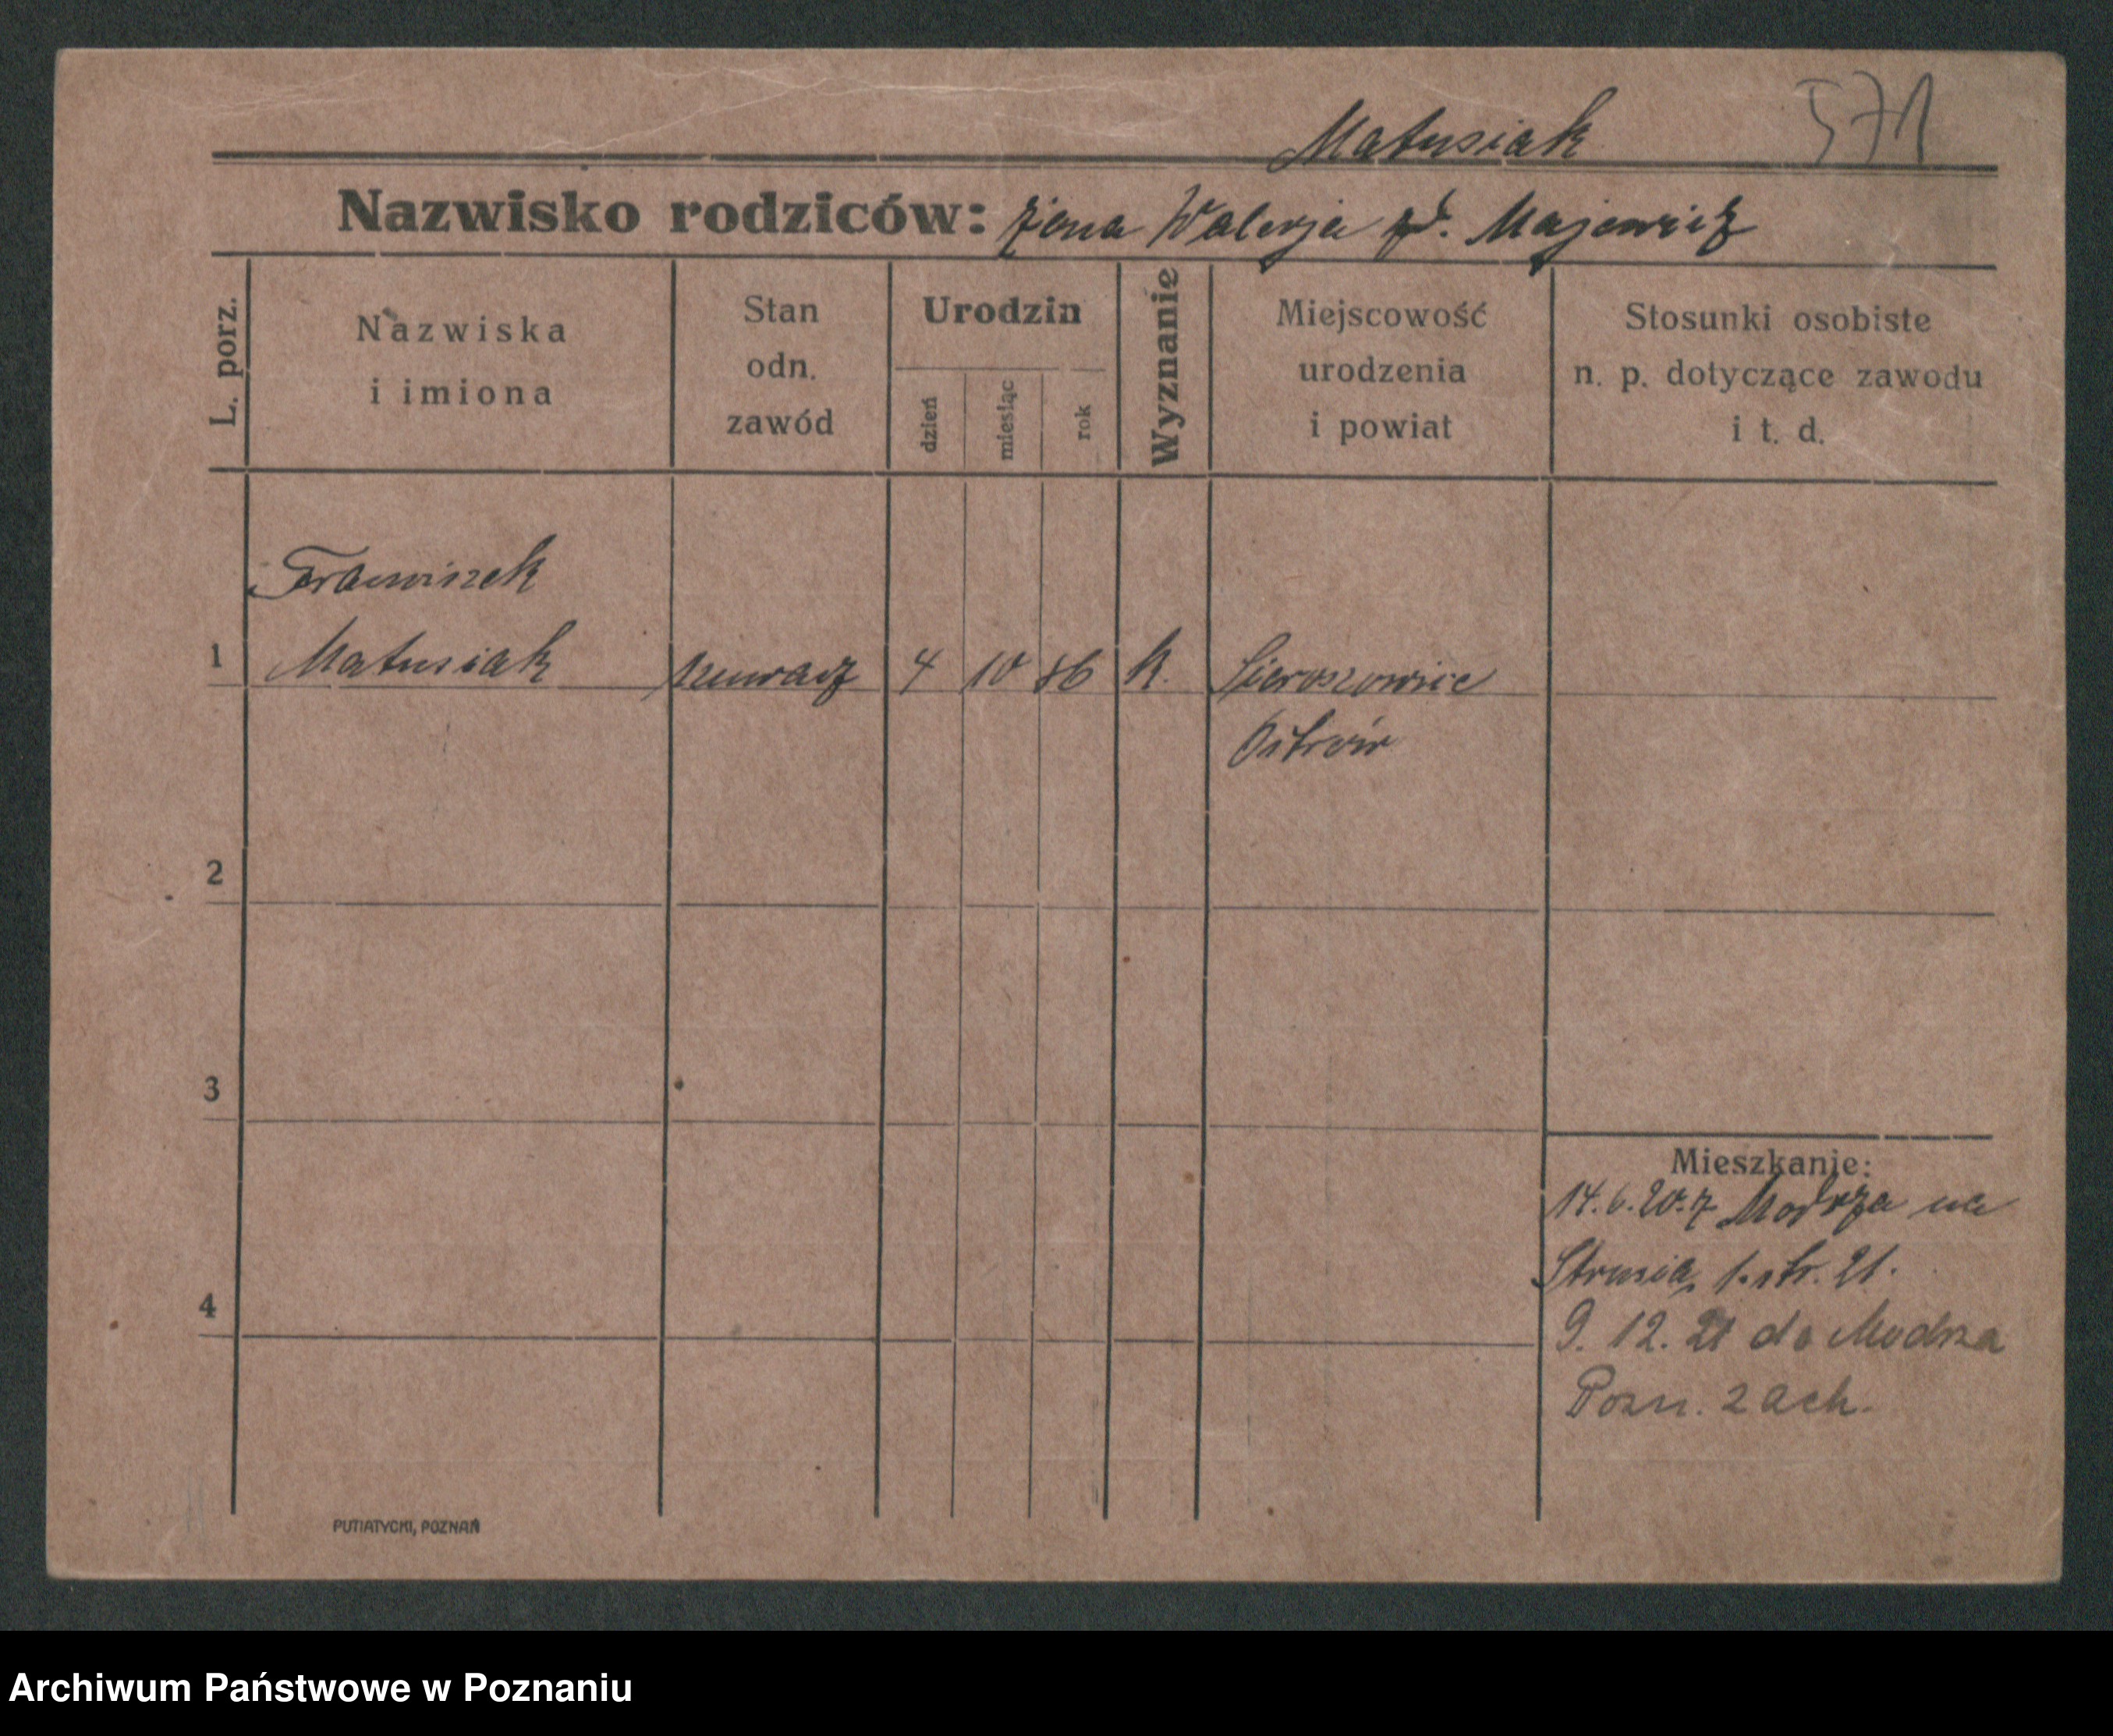 571
Matusiak
Nazwisko rodziców: żona Walerja zd. Majewicz
L. porz.
Nazwiska
i imiona
Stan
odn.
zawód
Urodzin
dzień
miesiąc
rok
Wyznanie
Miejscowość
urodzenia
i powiat
Stosunki osobiste
n. p. dotyczące zawodu
i t. d.
Franciszek
1 Matusiak 4 10 86 k. Sieroszowice
Ostrów
2
3
Mieszkanie:
14.6.20. z Modrza na
Strusia 1. str. 21.
4
9. 12. 21 do Modrza
Pozn. zach.
PUTIATYCKI, POZNAŃ
Archiwum Państwowe w Poznaniu